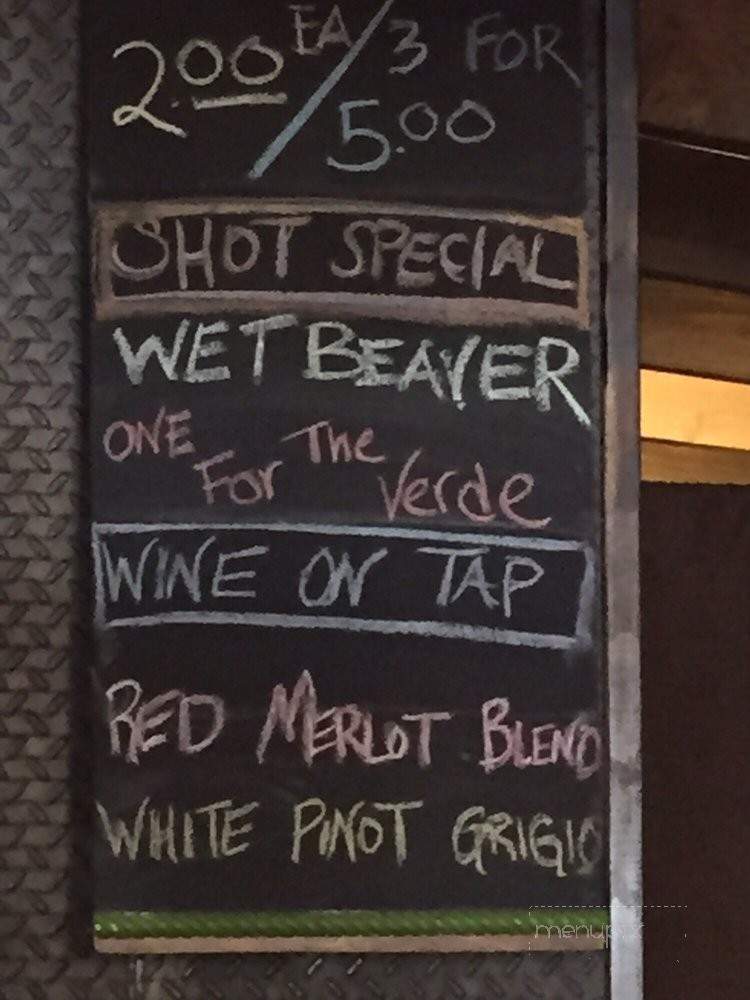 2.00 EA / 3 FOR
5.00
SHOT SPECIAL
WET BEAVER
ONE For The Verde
WINE ON TAP
RED MERLOT BLEND
WHITE PINOT GRIGIO
menupix